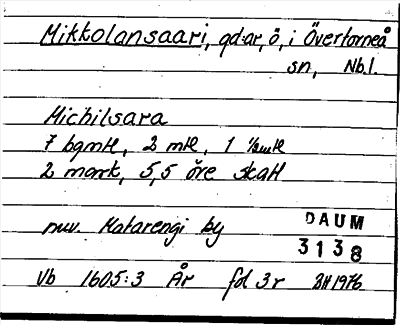 Mikkolansaari, gd:ar, ö, i Övertorneå
sn, Nb.l.
Michilsara
7 bgmtl, 2 mtl, 1 ½mtl
2 mark, 5,5 öre skatt
nuv. Matarengi by
DAUM
3138
Vb 1605:3 År fol 3r BH 1976